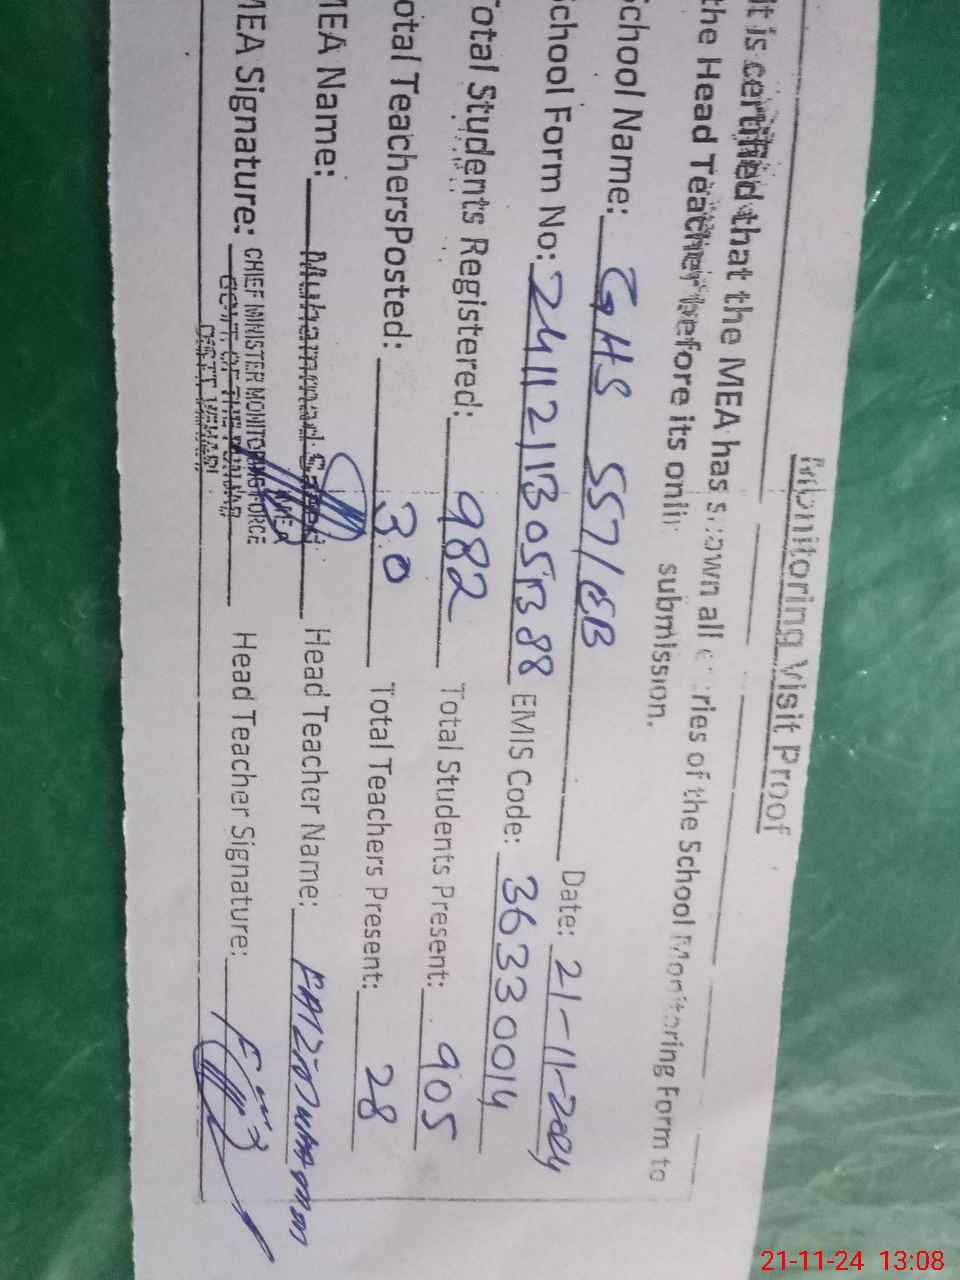 Monitoring Visit Proof
It is certified that the MEA has shown all entries of the School Monitoring Form to
the Head Teacher before its online submission.
School Name: GHS 557/EB Date: 21-11-2024
School Form No: EMIS Code: 36330014
Total Students Registered: 982 Total Students Present: 905
Total TeachersPosted: 30 Total Teachers Present: 28
MEA Name: Muhammad Head Teacher Name:
MEA
MEA Signature: CHIEF MINISTER MONITORING FORCE Head Teacher Signature:
GOVT. OF THE PUNJAB
DISTT. VEHARI
21-11-24 13:08